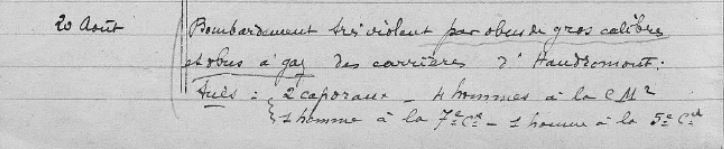 20 Août Bombardement très violent par obus de gros calibre
et obus à gaz des carrières d'Haudromont.
Tués : 2 caporaux - 4 hommes à la CM2
1 homme à la 7e Cie - 1 homme à la 5e Cie